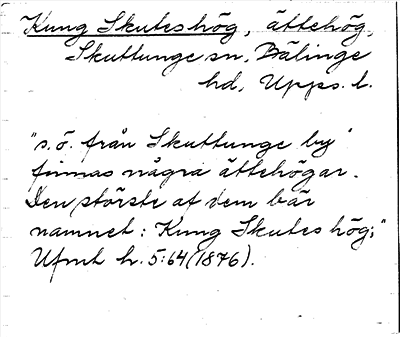 Kung Skutes hög, ättehög,
Skuttunge sn, Bälinge
hd, Upps. l.
"s.ö. från Skuttunge by
finnas några ättehögar.
Den störste af dem bär
namnet: Kung Skutes hög;"
Ufmt h. 5:64 (1876).